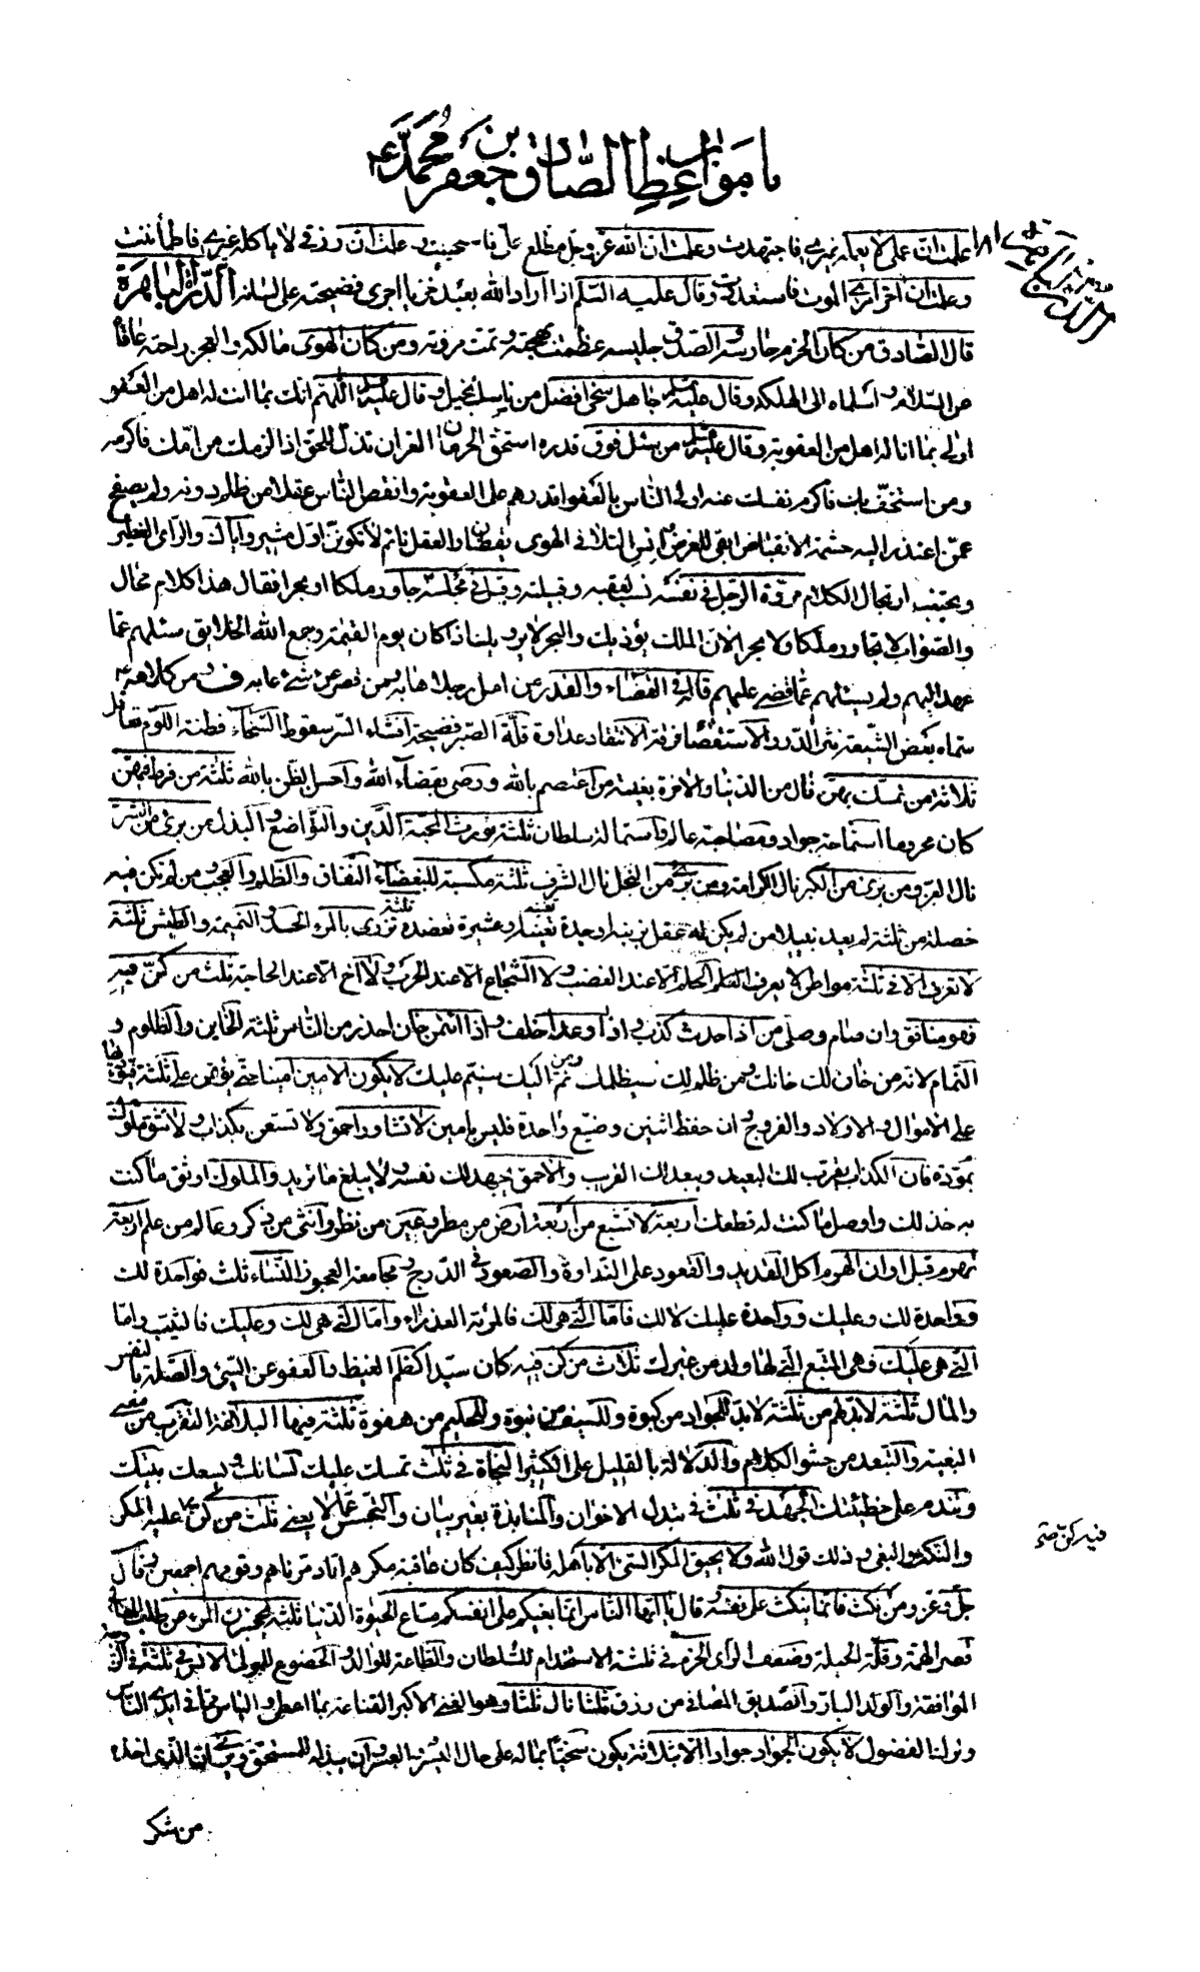 باب مواعظ الصادق جعفر بن محمد ع
علمت ان عملی لا یعمله غیری فاجتهدت وعلمت ان الله عز وجل مطلع علی فاستحییت وعلمت ان رزقی لا یاکله غیری فاطمأننت
وعلمت ان آخر امری الموت فاستعددت وقال علیه السلم اذا اراد الله بعبد خزیا اجری فضیحته علی لسانه الدرة الباهرة
قال الصادق من کان الحزم حارسه والصدق جلیسه عظمت بهجته وتمت مروته ومن کان الهوی مالکه والعجز راحته عاقاه
عن السلامة واسلماه الی الهلکة وقال علیه السلم جاهل سخی افضل من ناسک بخیل وقال علیه السلم اللهم انک بما انت له اهل من العفو
اولی بما انا له اهل من العقوبة وقال علیه السلم من سئل فوق قدره استحق الحرمان العز ان تذل للحق اذا لزمک من امک فاکرمه
ومن استخف بک فاکرم نفسک عنه اولی الناس بالعفو اقدرهم علی العقوبة وانقص الناس عقلا من ظلم دونه ولم یصفح
عمن اعتذر الیه حشمة الانقباض ابقی للعز من انس التلاقی الهوی یقظان والعقل نائم لا تکونن اول مشیر وایاک والرای الفطیر
وتجنب ارتجال الکلام مروة الرجل فی نفسه نسب لعقبه وقبیلته وقیل فی مجلسه جاور ملکا او بحرا فقال هذا کلام محال
والصواب لا تجاور ملکا ولا بحرا لان الملک یؤذیک والبحر لا یرویک اذا کان یوم القیمة وجمع الله الخلایق سئلهم عما
عهد الیهم ولم یسئلهم عما قضی علیهم قاله فی القضاء والقدر من امل رجلا هابه ومن قصر عن شئ عابه ف ومن کلامه ع
سماه بعض الشیعة نثر الدرر الاستقصاء فرقة الانتقاد عداوة قلة الصبر فضیحة افشاء السر سقوط السخاء فطنة اللؤم تغافل
ثلاثة من تمسک بهن نال من الدنیا والاخرة بغیته من اعتصم بالله ورضی بقضاء الله واحسن الظن بالله ثلثة من فرط فیهن
کان محروما استماحة جواد ومصاحبة عالم واستمالة سلطان ثلثة تورث المحبة الدین والتواضع والبذل من بری من الشر
نال العز ومن بری من الکبر نال الکرامة ومن بری من البخل نال الشرف ثلثة مکسبة للبغضاء النفاق والظلم والعجب ومن لم تکن فیه
خصلة من ثلثة لم یعد نبیلا من لم یکن له عقل یزینه او جدة تغنیه او عشیرة تعضده ثلثة تزری بالمرء الحسد والنمیمة والطیش ثلثة
لا تعرف الا فی ثلثة مواطن لا یعرف الحلیم الا عند الغضب ولا الشجاع الا عند الحرب ولا اخ الا عند الحاجة ثلث من کن فیه
فهو منافق وان صام وصلی من اذا حدث کذب واذا وعد اخلف واذا ائتمن خان احذر من الناس ثلثة الخاین والظلوم و
النمام لان من خان لک خانک ومن ظلم لک سیظلمک ومن نم الیک سینم علیک لا یکون الامین امینا حتی یؤتمن علی ثلثة فیؤدیها
علی الاموال والاولاد والفروج وان حفظ اثنین وضیع واحدة فلیس بامین لا تشاور احمق ولا تستعن بکذاب ولا تثق بمودة ملوک
بمودة فان الکذاب یقرب لک البعید ویبعد لک القریب والاحمق یجهد لک نفسه ولا یبلغ ما ترید والملوک اوثق ما کنت
به خذلک واوصل ما کنت له قطعک اربعة لا تشبع من اربعة ارض من مطر وعین من نظر وانثی من ذکر وعالم من علم اربعة
تهرم قبل اوان الهرم اکل القدید والقعود علی النداوة والصعود فی الدرج ومجامعة العجوز النساء ثلث فواحدة لک
وواحدة لک وعلیک وواحدة علیک لا لک فاما التی هی لک فالمرئة العذراء واما التی هی لک وعلیک فالثیب واما
التی هی علیک فهی المتبع التی لها ولد من غیرک ثلاث من کن فیه کان سیدا کظم الغیظ والعفو عن المسئ والصلة بالنفس
والمال ثلثة لابد لهم من ثلثة لابد للجواد من کبوة وللسیف من نبوة وللحلیم من هفوة ثلثة فیها البلاغة التقرب من معنی
البغیة والتبعد من حشو الکلام والدلالة بالقلیل علی الکثیر النجاة فی ثلث تمسک علیک لسانک ویسعک بیتک
وتندم علی خطیئتک الجهل فی ثلث فی تبدل الاخوان والمنابذة بغیر بیان والتجسس عما لا یعنی ثلث من کن فیه کن علیه المکر
والنکث والبغی وذلک قول الله ولا یحیق المکر السئ الا باهله فانظر کیف کان عاقبة مکرهم انا دمرناهم وقومهم اجمعین وقال
جل وعز ومن نکث فانما ینکث علی نفسه وقال یا ایها الناس انما بغیکم علی انفسکم متاع الحیوة الدنیا ثلثة یحجزن المرء عن طلب المعالی
قصر الهمة وقلة الحیلة وضعف الرای الحزم فی ثلثة الاستخدام للسلطان والطاعة للوالد والخضوع للمولی الانس فی ثلثة فی الزوجة
الموافقة والولد البار والصدیق المصافی من رزق ثلثا نال ثلثا وهو الغنی الاکبر القناعة بما اعطی والیاس مما فی ایدی الناس
وترک الفضول لا یکون الجواد جوادا الا بثلاثة یکون سخیا بماله علی حال الیسر والعسر وان یبذله للمستحق ویری ان الذی اخذه
من شکر
فیه کن صح